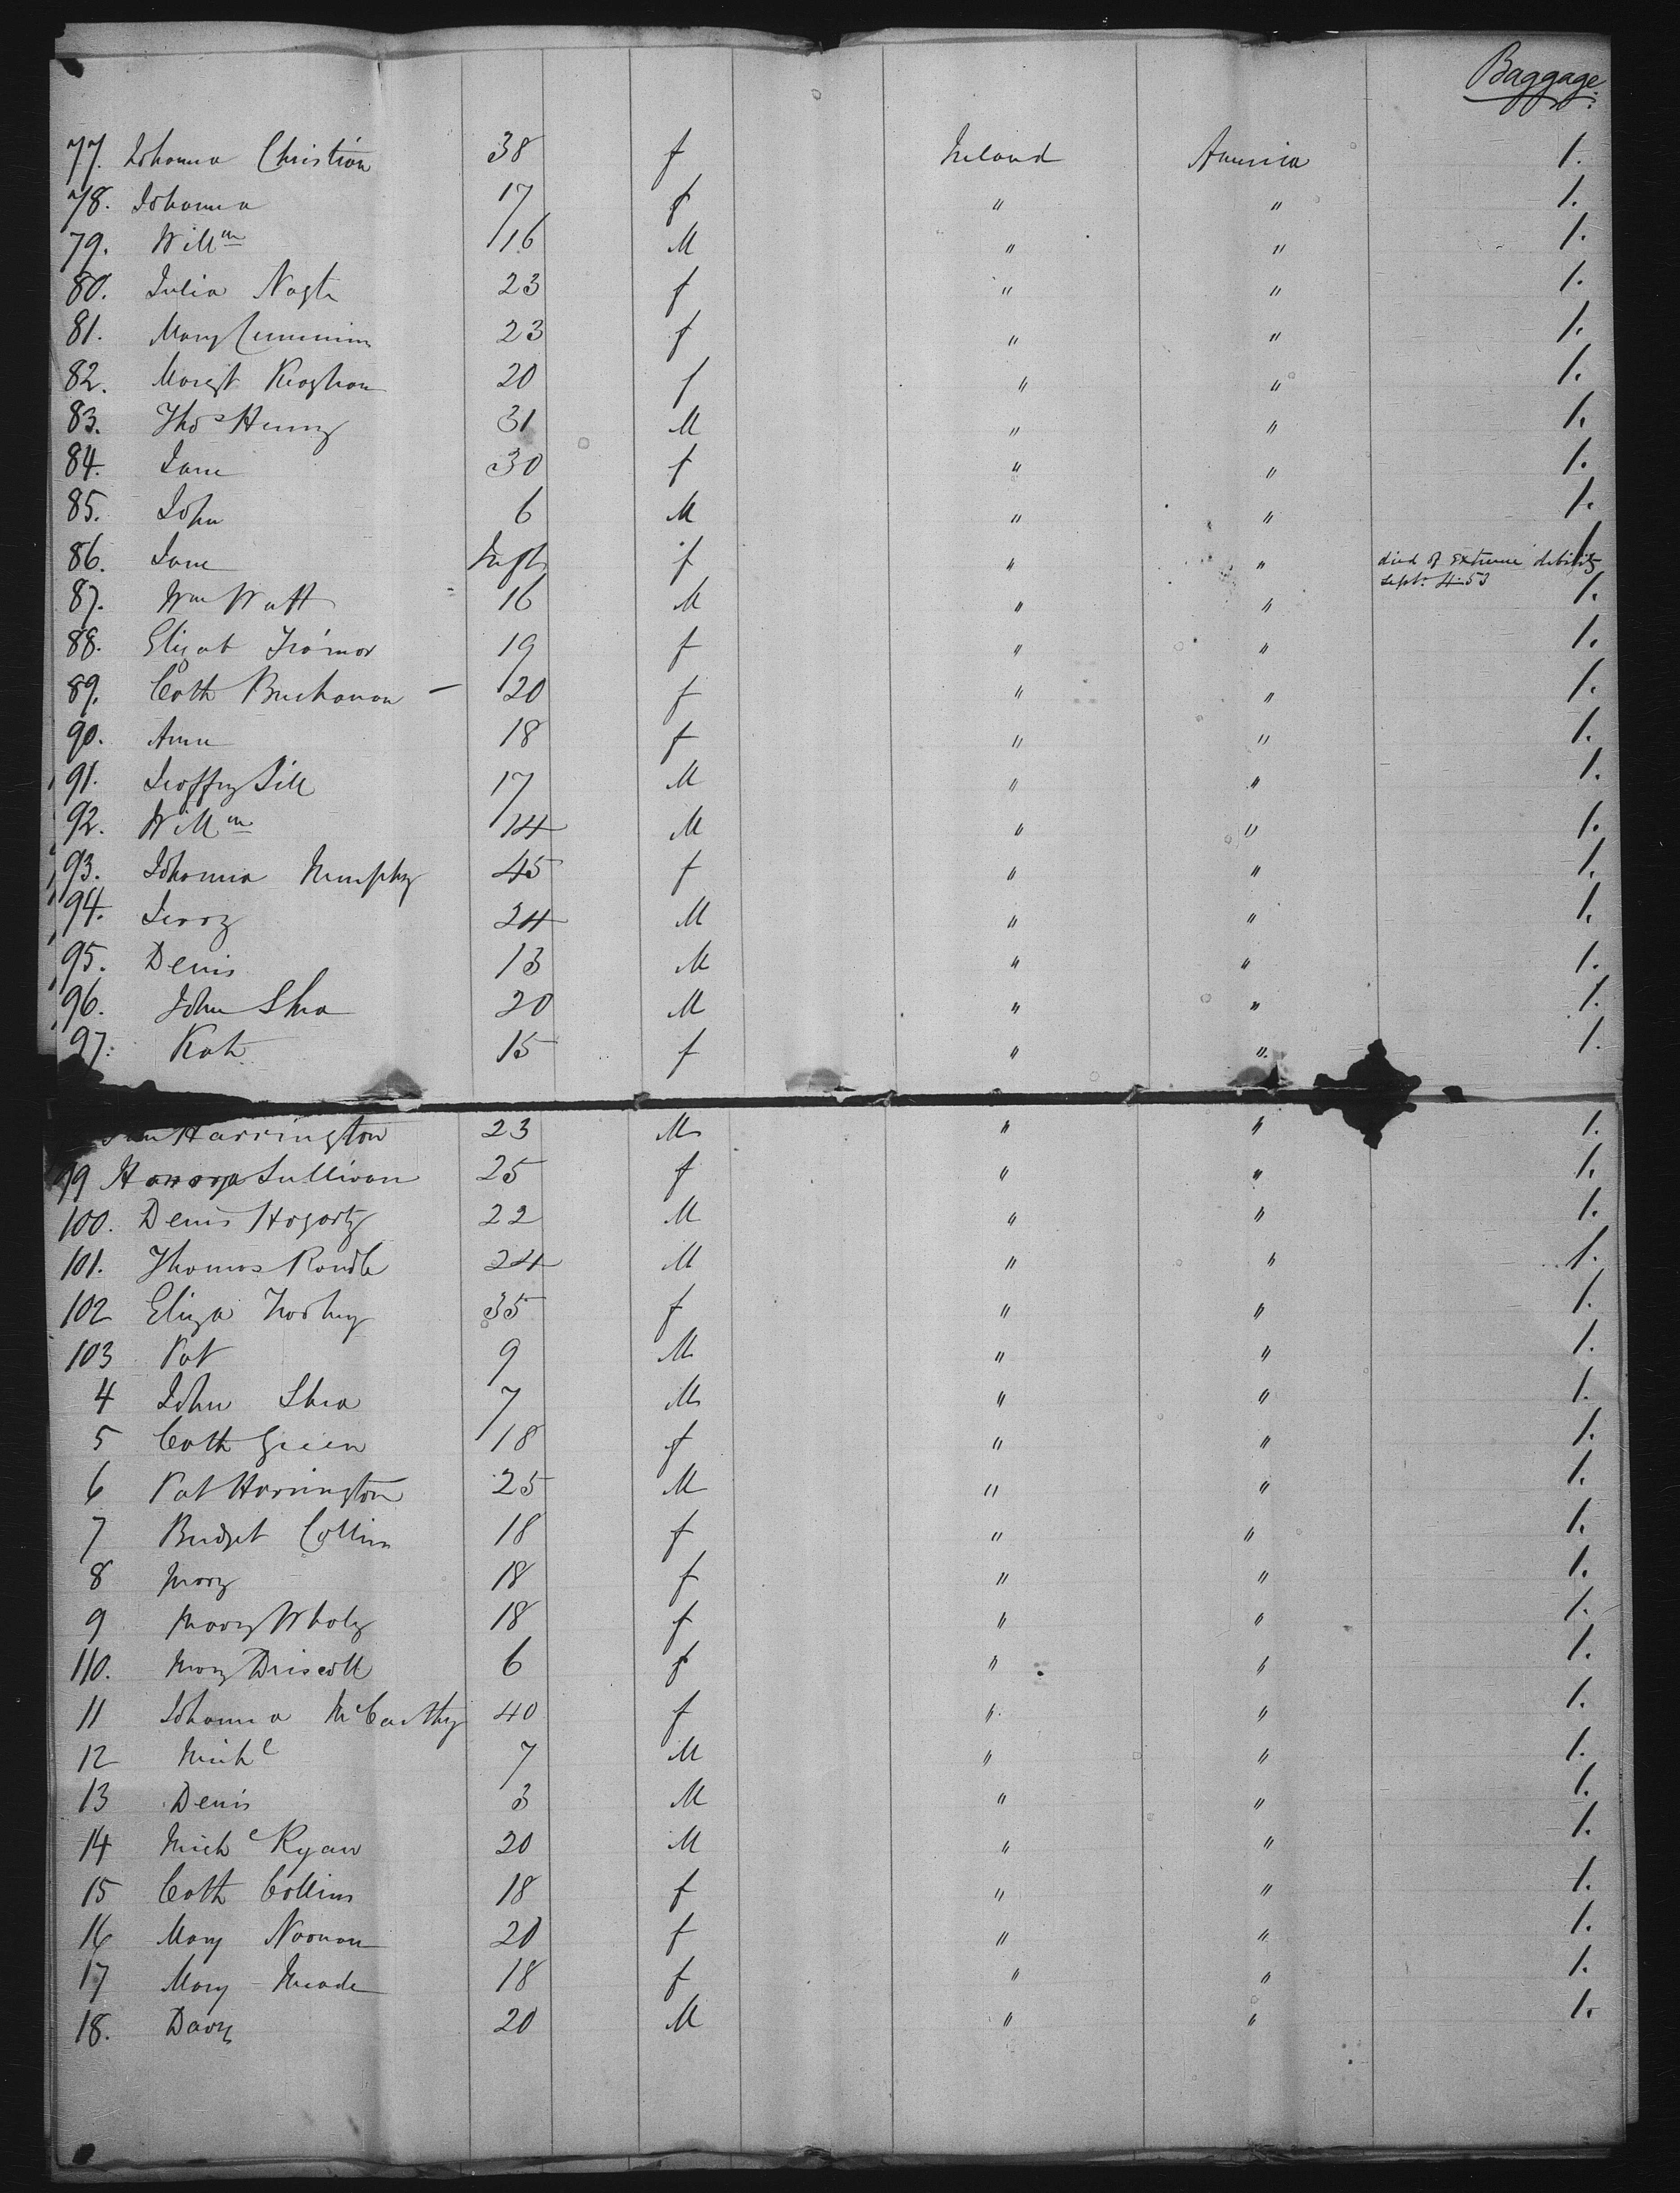 Baggage.
77. Johanna Christian 38 f Ireland America 1.
78. Johanna 17 f " " 1.
79. Willm 16 M " " 1.
80. Julia Nagle 23 f " " 1.
81. Mary Cummins 23 f " " 1.
82. Margt 20 f " " 1.
83. Thos Henry 31 M " " 1.
84. Jane 30 f " " 1.
85. John 6 M " " 1.
86. Jane Inft f " " died of extreme debility 1
Sept. 4 53
87. Wm Watt 16 M " " 1.
88. Elizab 19 f " " 1.
89. Cath Buchanan – 20 f " " 1.
90. Anne 18 f " " 1.
91. 17 M " " 1.
92. Willm 14 M " " 1.
93. Johanna Murphy 45 f " " 1.
94. Jerry 24 M " " 1.
95. Denis 13 M " " 1.
96. John Shea 20 M " " 1.
97. Kate 15 f " " 1.
Harrington 23 M " " 1.
99 Honora Sullivan 25 f " " 1.
100. Denis Hogarty 22 M " " 1.
101. Thomas Roudle 24 M " " 1.
102 Eliza 35 f " " 1.
103 Pat 9 M " " 1.
4 John Shea 7 M " " 1.
5 Cath Green 18 f " " 1.
6 Pat Harrington 25 M " " 1.
7 Bridget Collins 18 f " " 1.
8 Mary 18 f " " 1.
9 Mary Whaly 18 f " " 1.
110. Mary Driscoll 6 f " " 1.
11 Johanna McCarthy 40 f " " 1.
12 Michl 7 M " " 1.
13 Denis 3 M " " 1.
14 Michl Ryan 20 M " " 1.
15 Cath Collins 18 f " " 1.
16 Mary Noonan 20 f " " 1.
17 Mary Meade 18 f " " 1.
18. Davy 20 M " " 1.